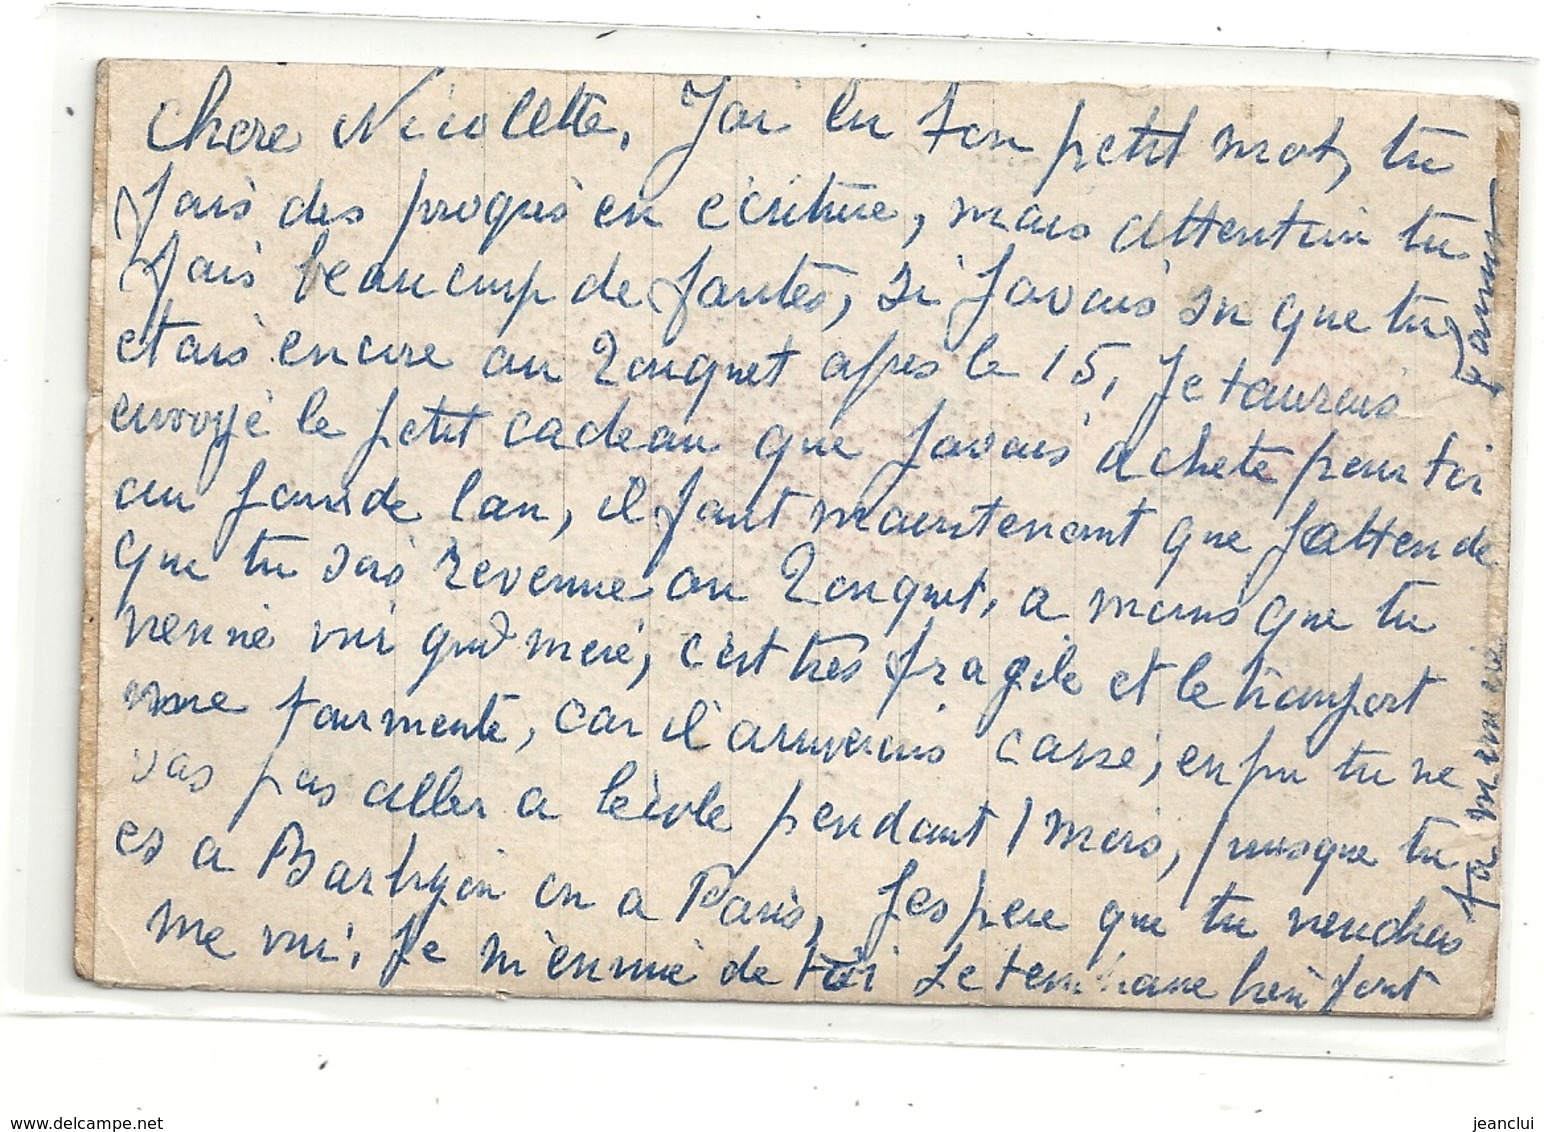 chere Nicolette, J'ai lu ton petit mot, tu
fais des progrès en écriture, mais attention tu
fais beaucoup de fautes, si Javais su que tu
etais encore au Touquet apres le 15, Je taurais
envoyé le petit cadeau que Javais acheté pour toi
au jour de lan, il faut maintenant que Jattende
que tu sois revenue au Touquet, a moins que tu
vienne voir mere, c'est très fragile et le transport
me tourmente, car il arriverais cassé, enfin tu ne
vas pas aller a lécole pendant 1 mois, puisque tu
es a ou a Paris, Jespere que tu viendras
me voir, Je m'ennuie de toi Je tembrasse bien fort
ta mémère
Fanny
www.delcampe.net
jeanclui